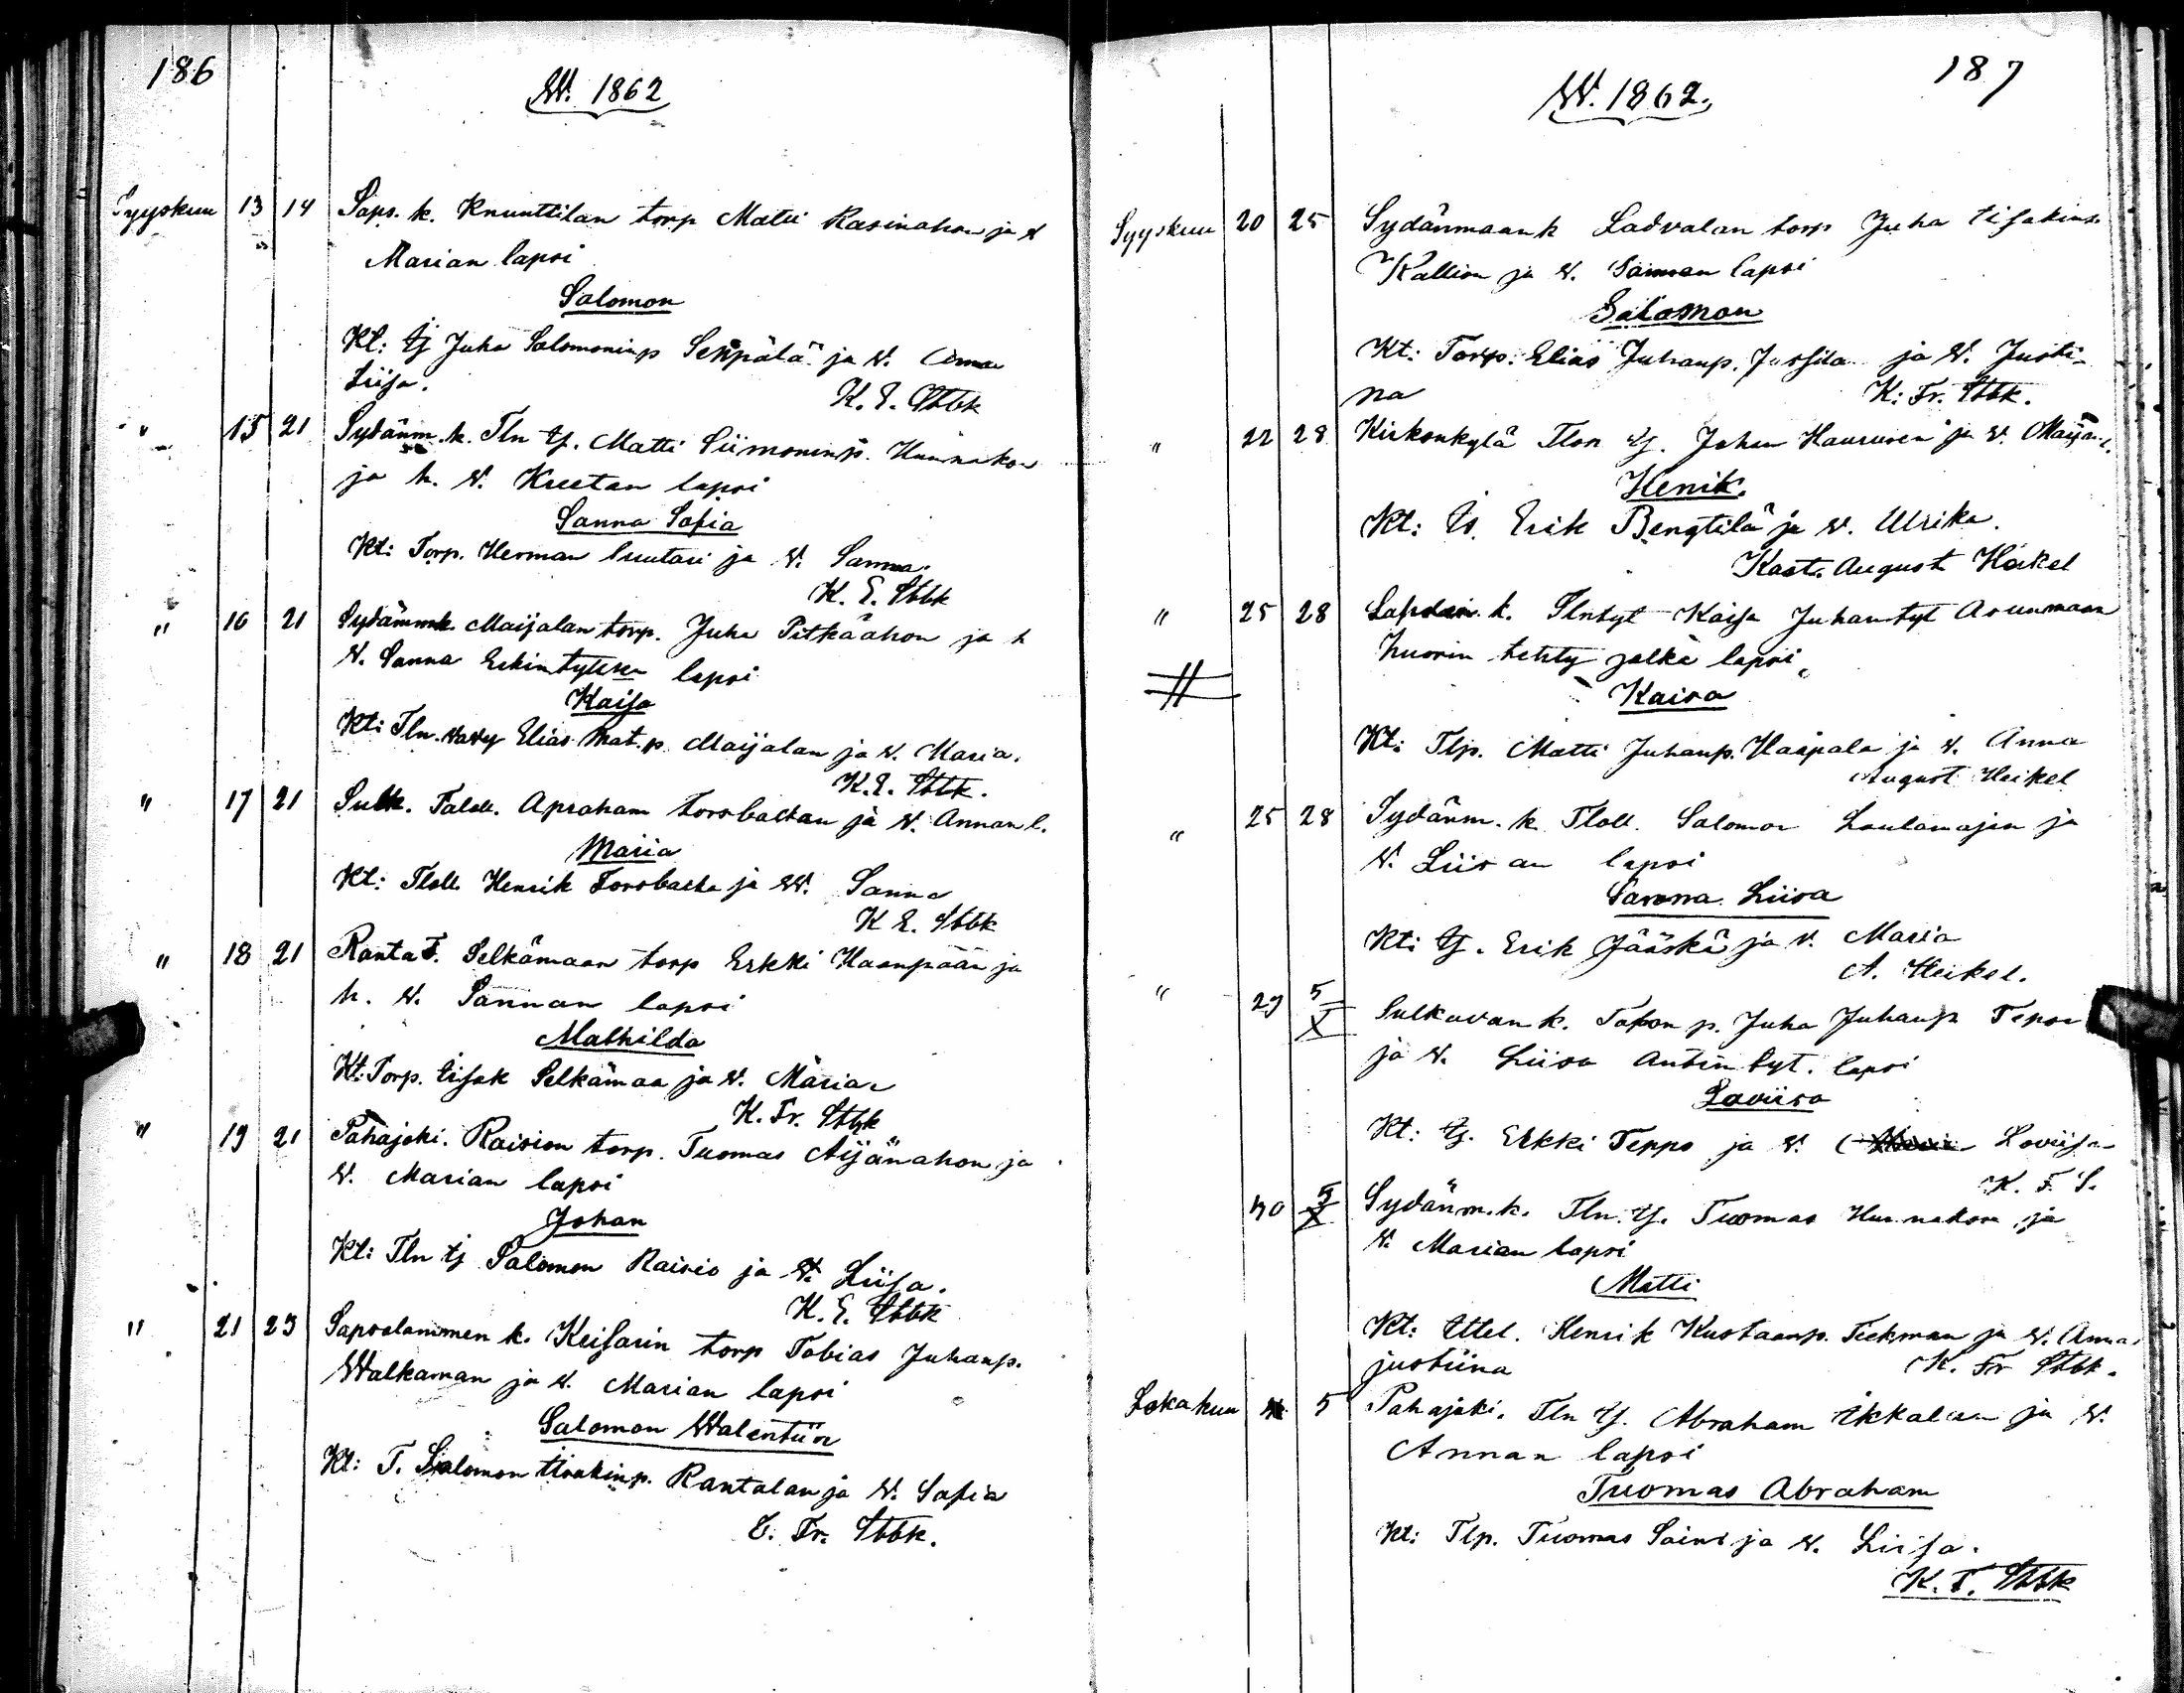 186
W. 1862
Syyskuu 13 14 Saps. k. Knuuttilan torp Matti Rasinahon ja w
Marian lapsi
Salomon
Kt: tj Juha Salomoninp Seppälä ja w.
Liisa.
K. E. Stbk
" 15 21 Sydänm. k. Tln tj. Matti Siimoninp. Hunnakon
ja h. w. Kreetan lapsi
Sanna Sofia
Kt: Torp. Herman luutari ja w. Sanna.
K. E. Stbk
" 16 21 Sydänmk. Maijalan torp. Juha Pitkäahon ja h
w. Sanna Erkintytären lapsi
Kaisa
Kt: Tln. vävy Elias Mat.p. Maijalan ja w. Maria.
K. E. Stbk.
" 17 21 Sulk. Taloll. Apraham Forsbackan ja w. Annan l.
Maria
Kt: Tloll. Henrik Forsbacka ja W. Sanna
K E. Stbk
" 18 21 Ranta T. Selkämaan torp Erkki Haanpään ja
h. w. Sannan lapsi
Mathilda
Kt: Torp. Iisak Selkämaa ja w. Maria
K. Fr. Stbk
" 19 21 Pahajoki. Raision torp. Tuomas Äijänahon ja
w. Marian lapsi
Johan
Kt: Tln tj Salomon Raisio ja w. Liisa.
K. E. Stbk
" 21 23 Sapsalammen k. Keisarin torp Tobias Juhanp.
Walkaman ja w. Marian lapsi
Salomon Walentiin
Kt: T. Salomon Iisakinp. Rantalan ja w. Sofia
C. Fr. Stbk.
187
W. 1862.
Syyskuu 20 25 Sydänmaan k Ladvalan torp Juha Iisakinp
Kallion ja w. Sannan lapsi
Salomon
Kt: Torp. Elias Juhanp. Jussila ja w. Justi-
na K: Fr. Stbk.
" 22 28 Kirkonkylä Tlon tj. Johan Kaurusen ja w. Maijan l.
Henik.
Kt: Is. Erik Bengtilä ja w. Ulrika.
Kast. August Heikel
" 25 28 k. Tlntyt Kaisa Juhantyt Asunmaan
huorin tehty jalka lapsi
Kaisa
Kt: Tlp. Matti Juhanp. Haapala ja w. Anna
August Heikel
" 25 28 Sydänm. k. Tloll. Salomon Laulamajan ja
w. Liisan lapsi
Sanna Liisa
Kt: tj. Erik Jääskä ja w. Maria
A. Heikel.
" 29 5/X Sulkavan k. Talon p. Juha Juhanp Tepon
ja w. Liisa Antintyt. lapsi
Loviisa
Kt: tj. Erkki Teppo ja w. Loviisa
K. F. S.
30 5/X Sydänm. k. Tln. tj. Tuomas Hunnakon ja
w. Marian lapsi
Matti
Kt: Ittel. Henrik Kustaanp. Teekman ja w. Anna
justiina K. Fr Stbk.
Lokakuu 5 Pahajoki. Tln tj. Abraham Ikkalan ja w.
Annan lapsi
Tuomas Abraham
Kt: Tlp. Tuomas Saini ja w. Liisa.
K. F. Stbk